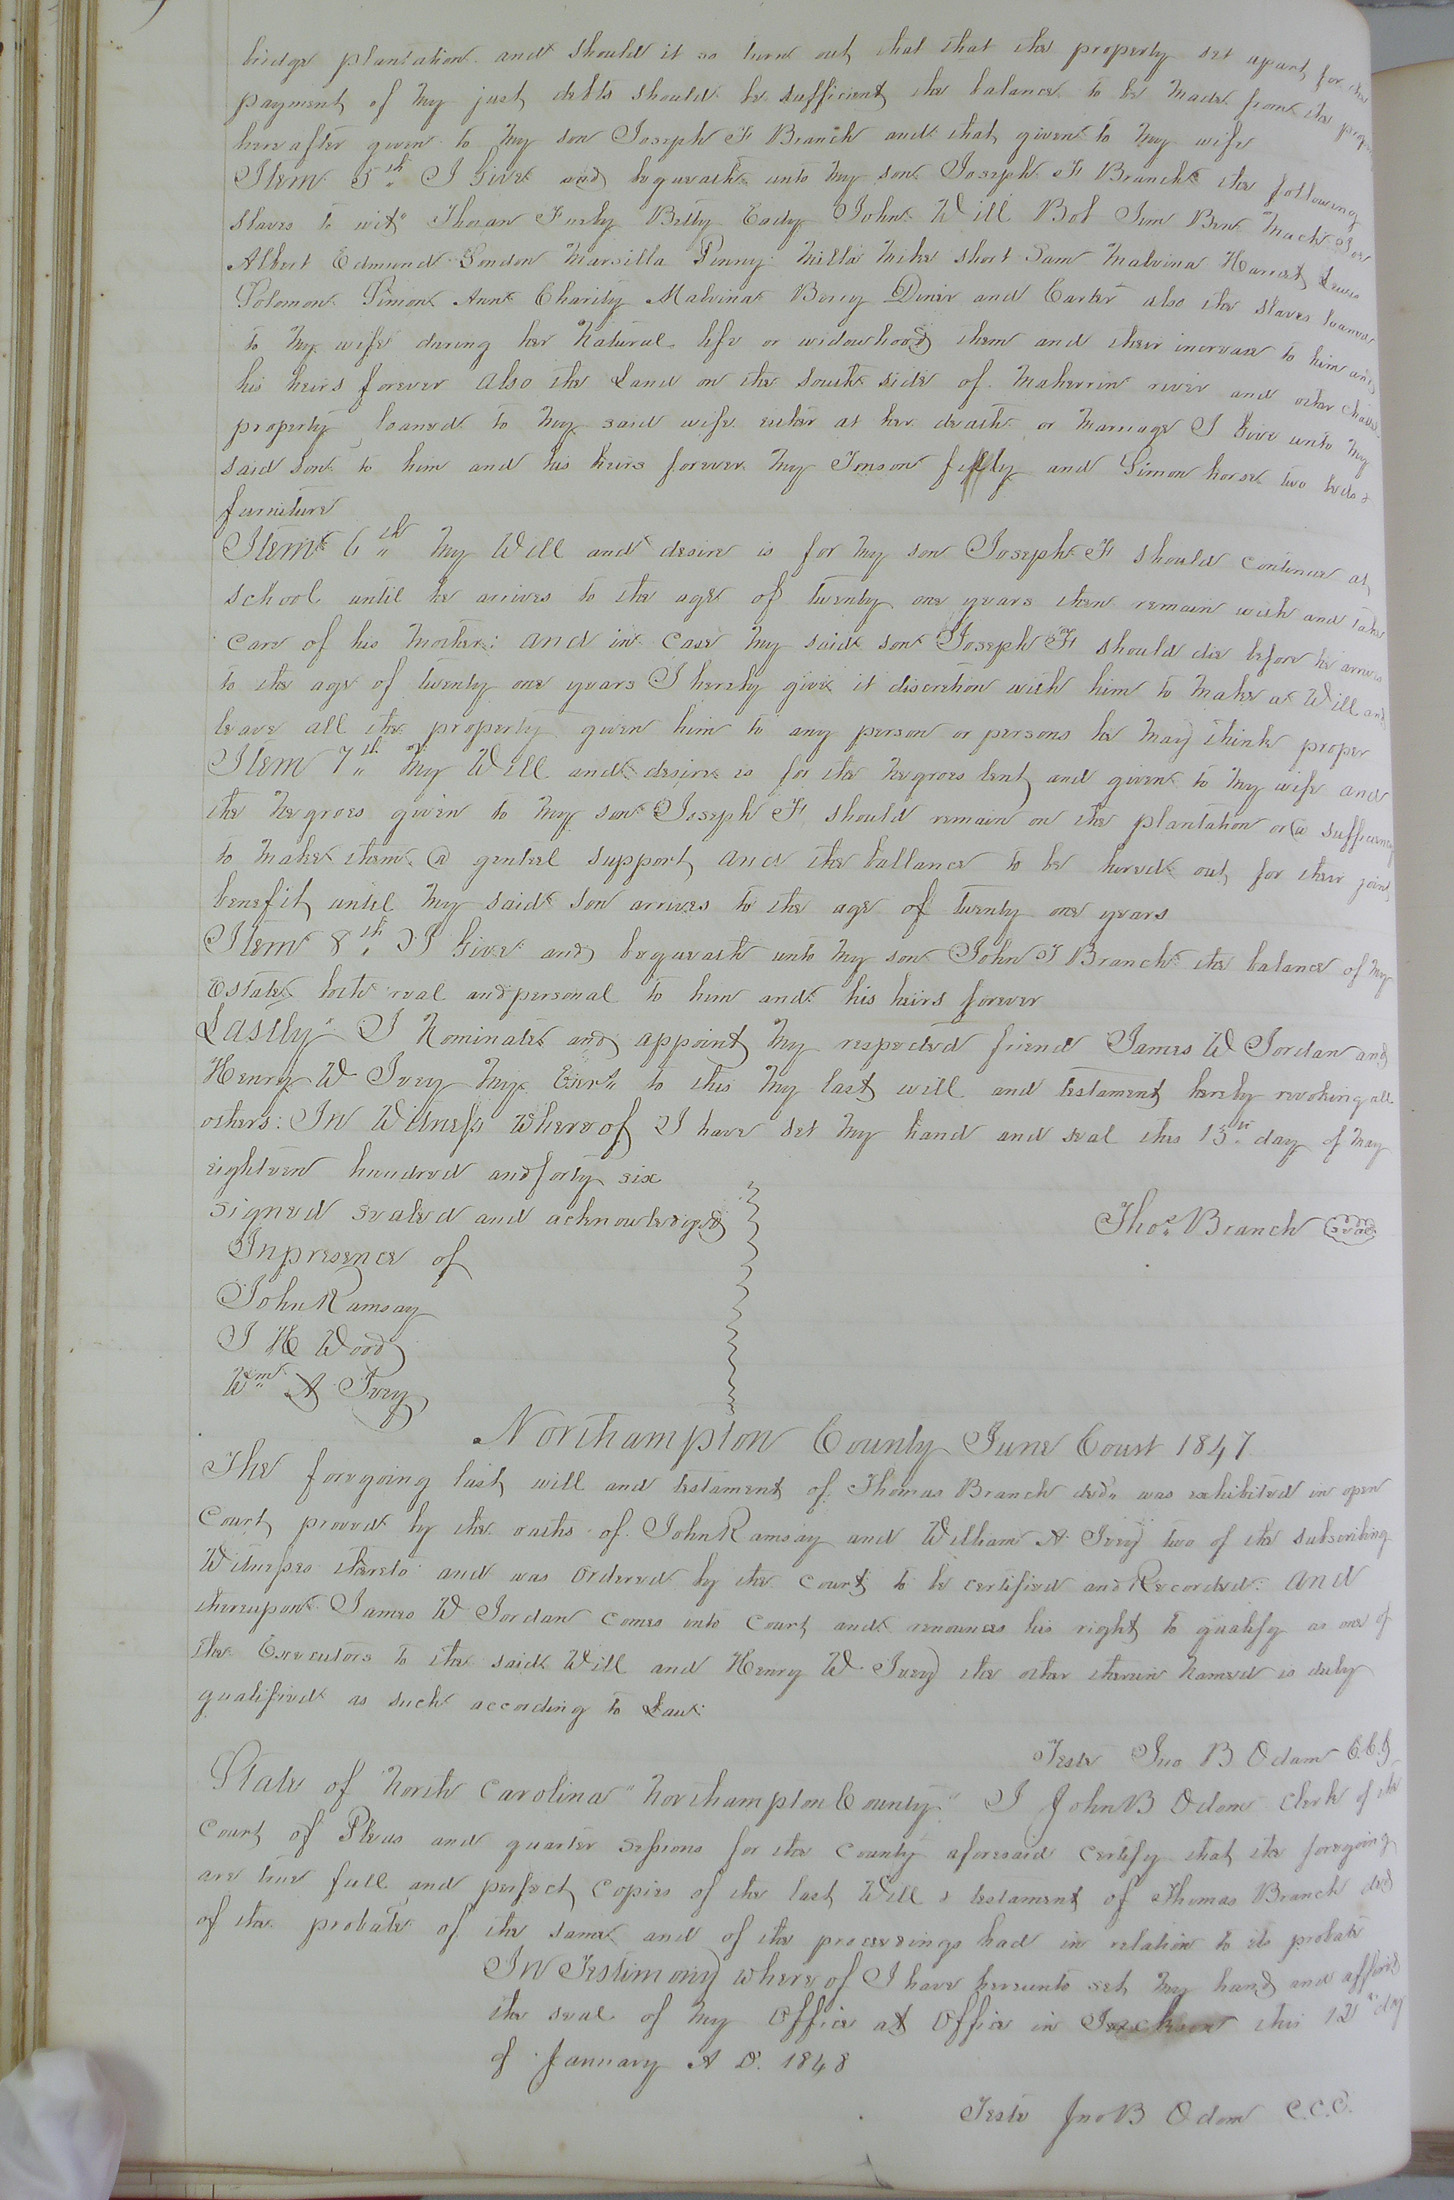 bridge plantation and should it so turn out that that the property set apart for the
payment of my just debts should be sufficient the balance to be made from the prop
hereafter given to my son Joseph F Branch and that given to my wife
Item 5th I Give and bequeath unto my son Joseph F Branch the following
slaves to wit Betty Eady John Will Bob Jim Ben Mack Joe
Albert Edmund London Marsilla Penny Milla Mike short Sam Malvina Harriet Lewis
Solomon Simon Ann Charity Malvina Berry Diner and Carter also the slaves loaned
to my wife during her Natural life or widowhood them and their increase to him and
his heirs forever also the Land on the south side of Maherrin river and other
property loaned to my said wife either at her death or marriage I Give unto my
said son to him and his heirs forever my and Simon horse two beds &
furniture
Item 6th My Will and desire is for my son Joseph F should continue at
school until he arives to the age of twenty one years then remain with and take
care of his mother: and in case my said son Joseph F should die before he arrives
to the age of twenty one years I hereby give it discretion with him to make a Will and
leave all the property given him to any person or persons he may think proper
Item 7th My Will and desire is for the negroes lent and given to my wife and
the negroes given to my son Joseph F should remain on the plantation or a sufficiency
to make them a genteel support and the ballance to be hired out for their joint
benefit until my said son arrives to the age of twenty one years
Item 8th I Give and bequeath unto my son John T Branch the balance of my
Estate both real and personal to him and his heirs forever
Lastly I Nominate and appoint my respected friend James W Jordan and
Henry W Ivey my Exers to this my last will and testament hereby revoking all
others: In Witness Whereof I have set my hand and seal this 15th day of May
eighteen hundred and forty six
signed sealed and acknowledged
Thos Branch seal
In presence of
John Ramsay
J H Wood
Wm A Ivey
Northampton County June Court 1847
The foregoing last will and testament of Thomas Branch decd was exhibited in open
Court proved by the oaths of John Ramsay and William A Ivey two of the subscribing
Witnesses thereto and was ordered by the court to be certified and Recorded: and
thereupon James W Jordan comes into court and renounces his right to qualify as one of
the Executors to the said Will and Henry W Ivey the other therein named is duly
qualified as such according to Law:
Teste Jno B Odom C.C.C.
State of North Carolina "Northampton County" I John B Odom Clerk of the
Court of Pleas and quarter sessions for the county aforesaid certify that the foregoing
are true full and perfect copies of the last Will & testament of Thomas Branch decd
of the probate of the same and of the proceedings had in relation to its probate
In Testimony whereof I have hereunto set my hand and affixed
the seal of my Office at Office in Jackson this 12th day
of January A D. 1848
Teste Jno B Odom C.C.C.